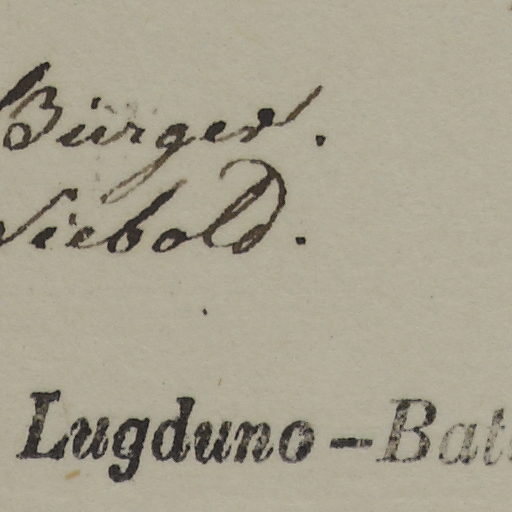 Bürger.
Siebold.
Lugduno-Bat